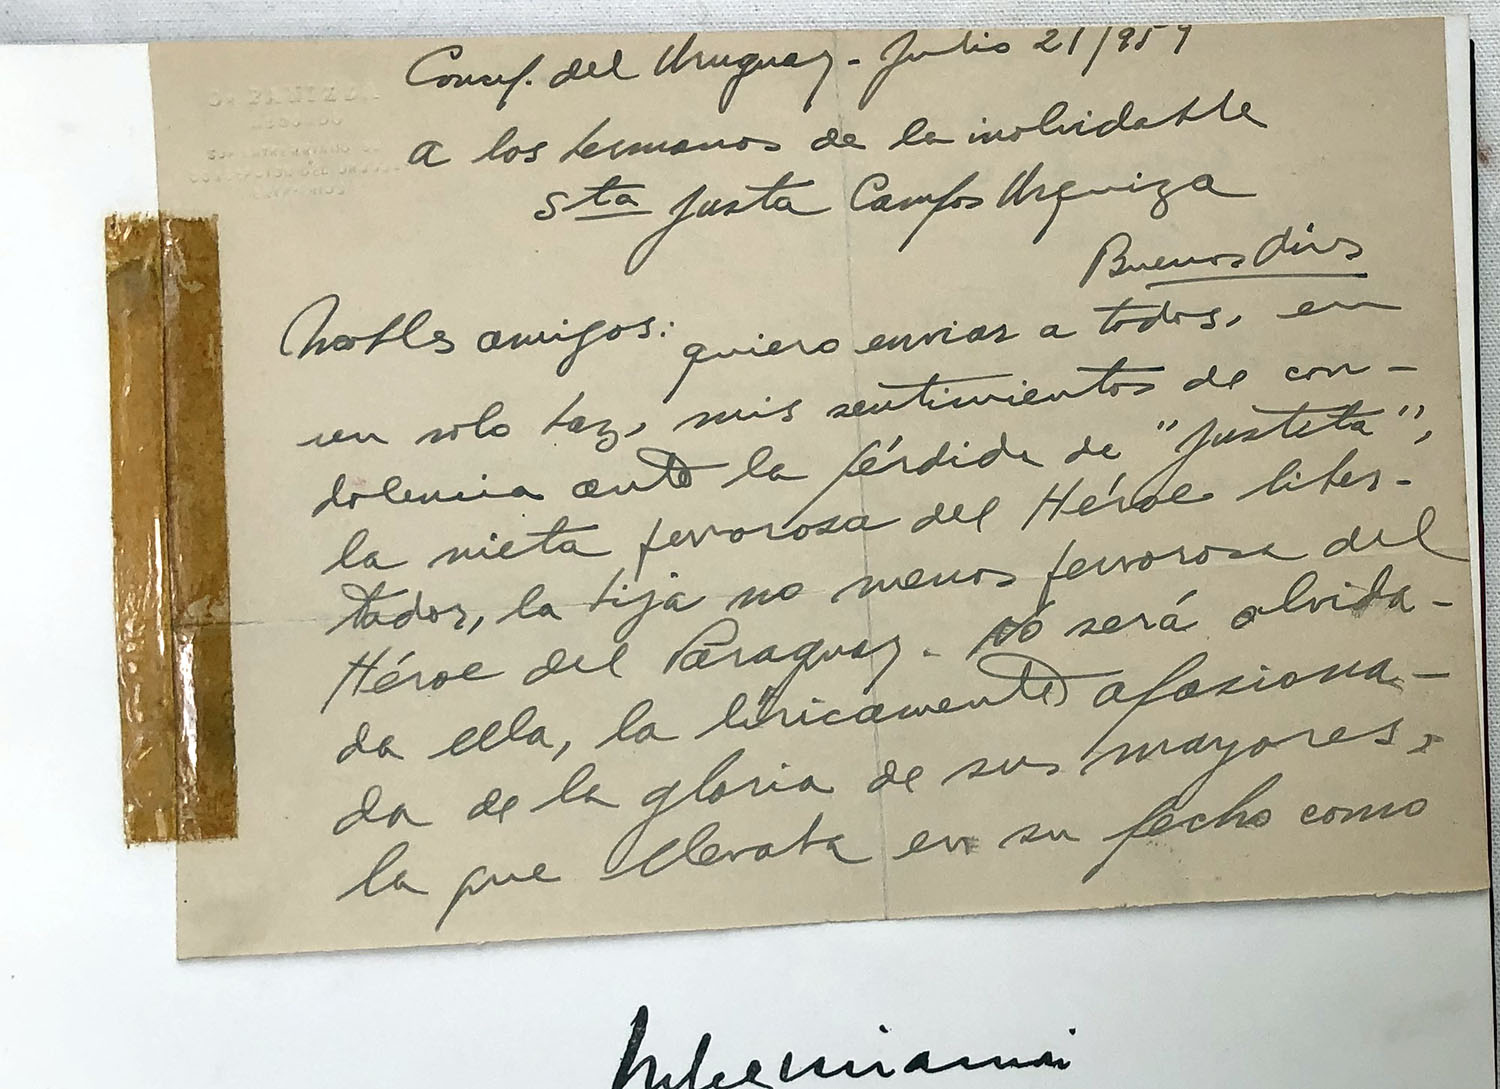 Concep. del Uruguay - Julio 21/959
A los hermanos de la inolvidable
Sta Justa Campos Urquiza
Buenos Aires
Nobles amigos: quiero enviar a todos, en
un solo haz, mis sentimientos de con-
dolencia ante la pérdida de "Justita",
la nieta fervorosa del Héroe liber-
tador, la hija no menos fervorosa del
Héroe del Paraguay. No será olvida-
da ella, la líricamente apasiona-
da de la gloria de sus mayores,
la que llevaba en su pecho como